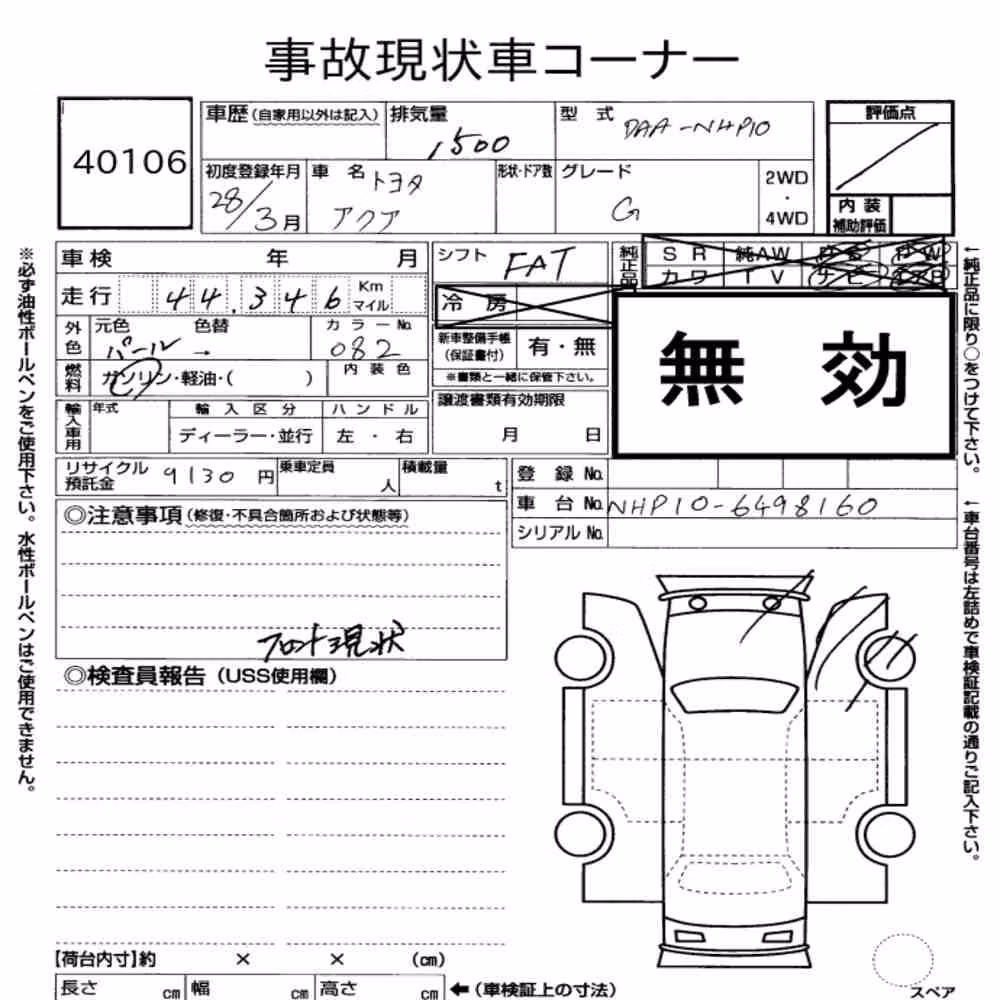 事故現状車コーナー
40106
車歴(自家用以外は記入) 排気量 1500 型式 DAA-NHP10 評価点
初度登録年月 28/3月 車名 トヨタ アクア 形状・ドア数 グレード G 2WD・4WD
内装補助評価
車検 年 月 シフト FAT 純正品 SR 純AW PS PW
走行 44,346 Km マイル 冷房 カワ TV ナビ エアB
外色 元色 パール 色替 → カラーNo. 082
新車整備手帳(保証書付) 有・無
※書類と一緒に保管下さい。
燃料 ガソリン・軽油・( ) 内装色
無効
譲渡書類有効期限 月 日
輸入車用 年式 輸入区分 ハンドル
ディーラー・並行 左・右
リサイクル預託金 9130円 乗車定員 人 積載量 t
登録No.
車台No. NHP10-6498160
シリアルNo.
◎注意事項(修復・不具合箇所および状態等)
フロント現状
◎検査員報告(USS使用欄)
【荷台内寸】約 × × (cm)
長さ cm 幅 cm 高さ cm ←(車検証上の寸法)
スペア
※必ず油性ボールペンをご使用下さい。水性ボールペンはご使用できません。
←純正品に限り○をつけて下さい。
←車台番号は左詰めで車検証記載の通りご記入下さい。